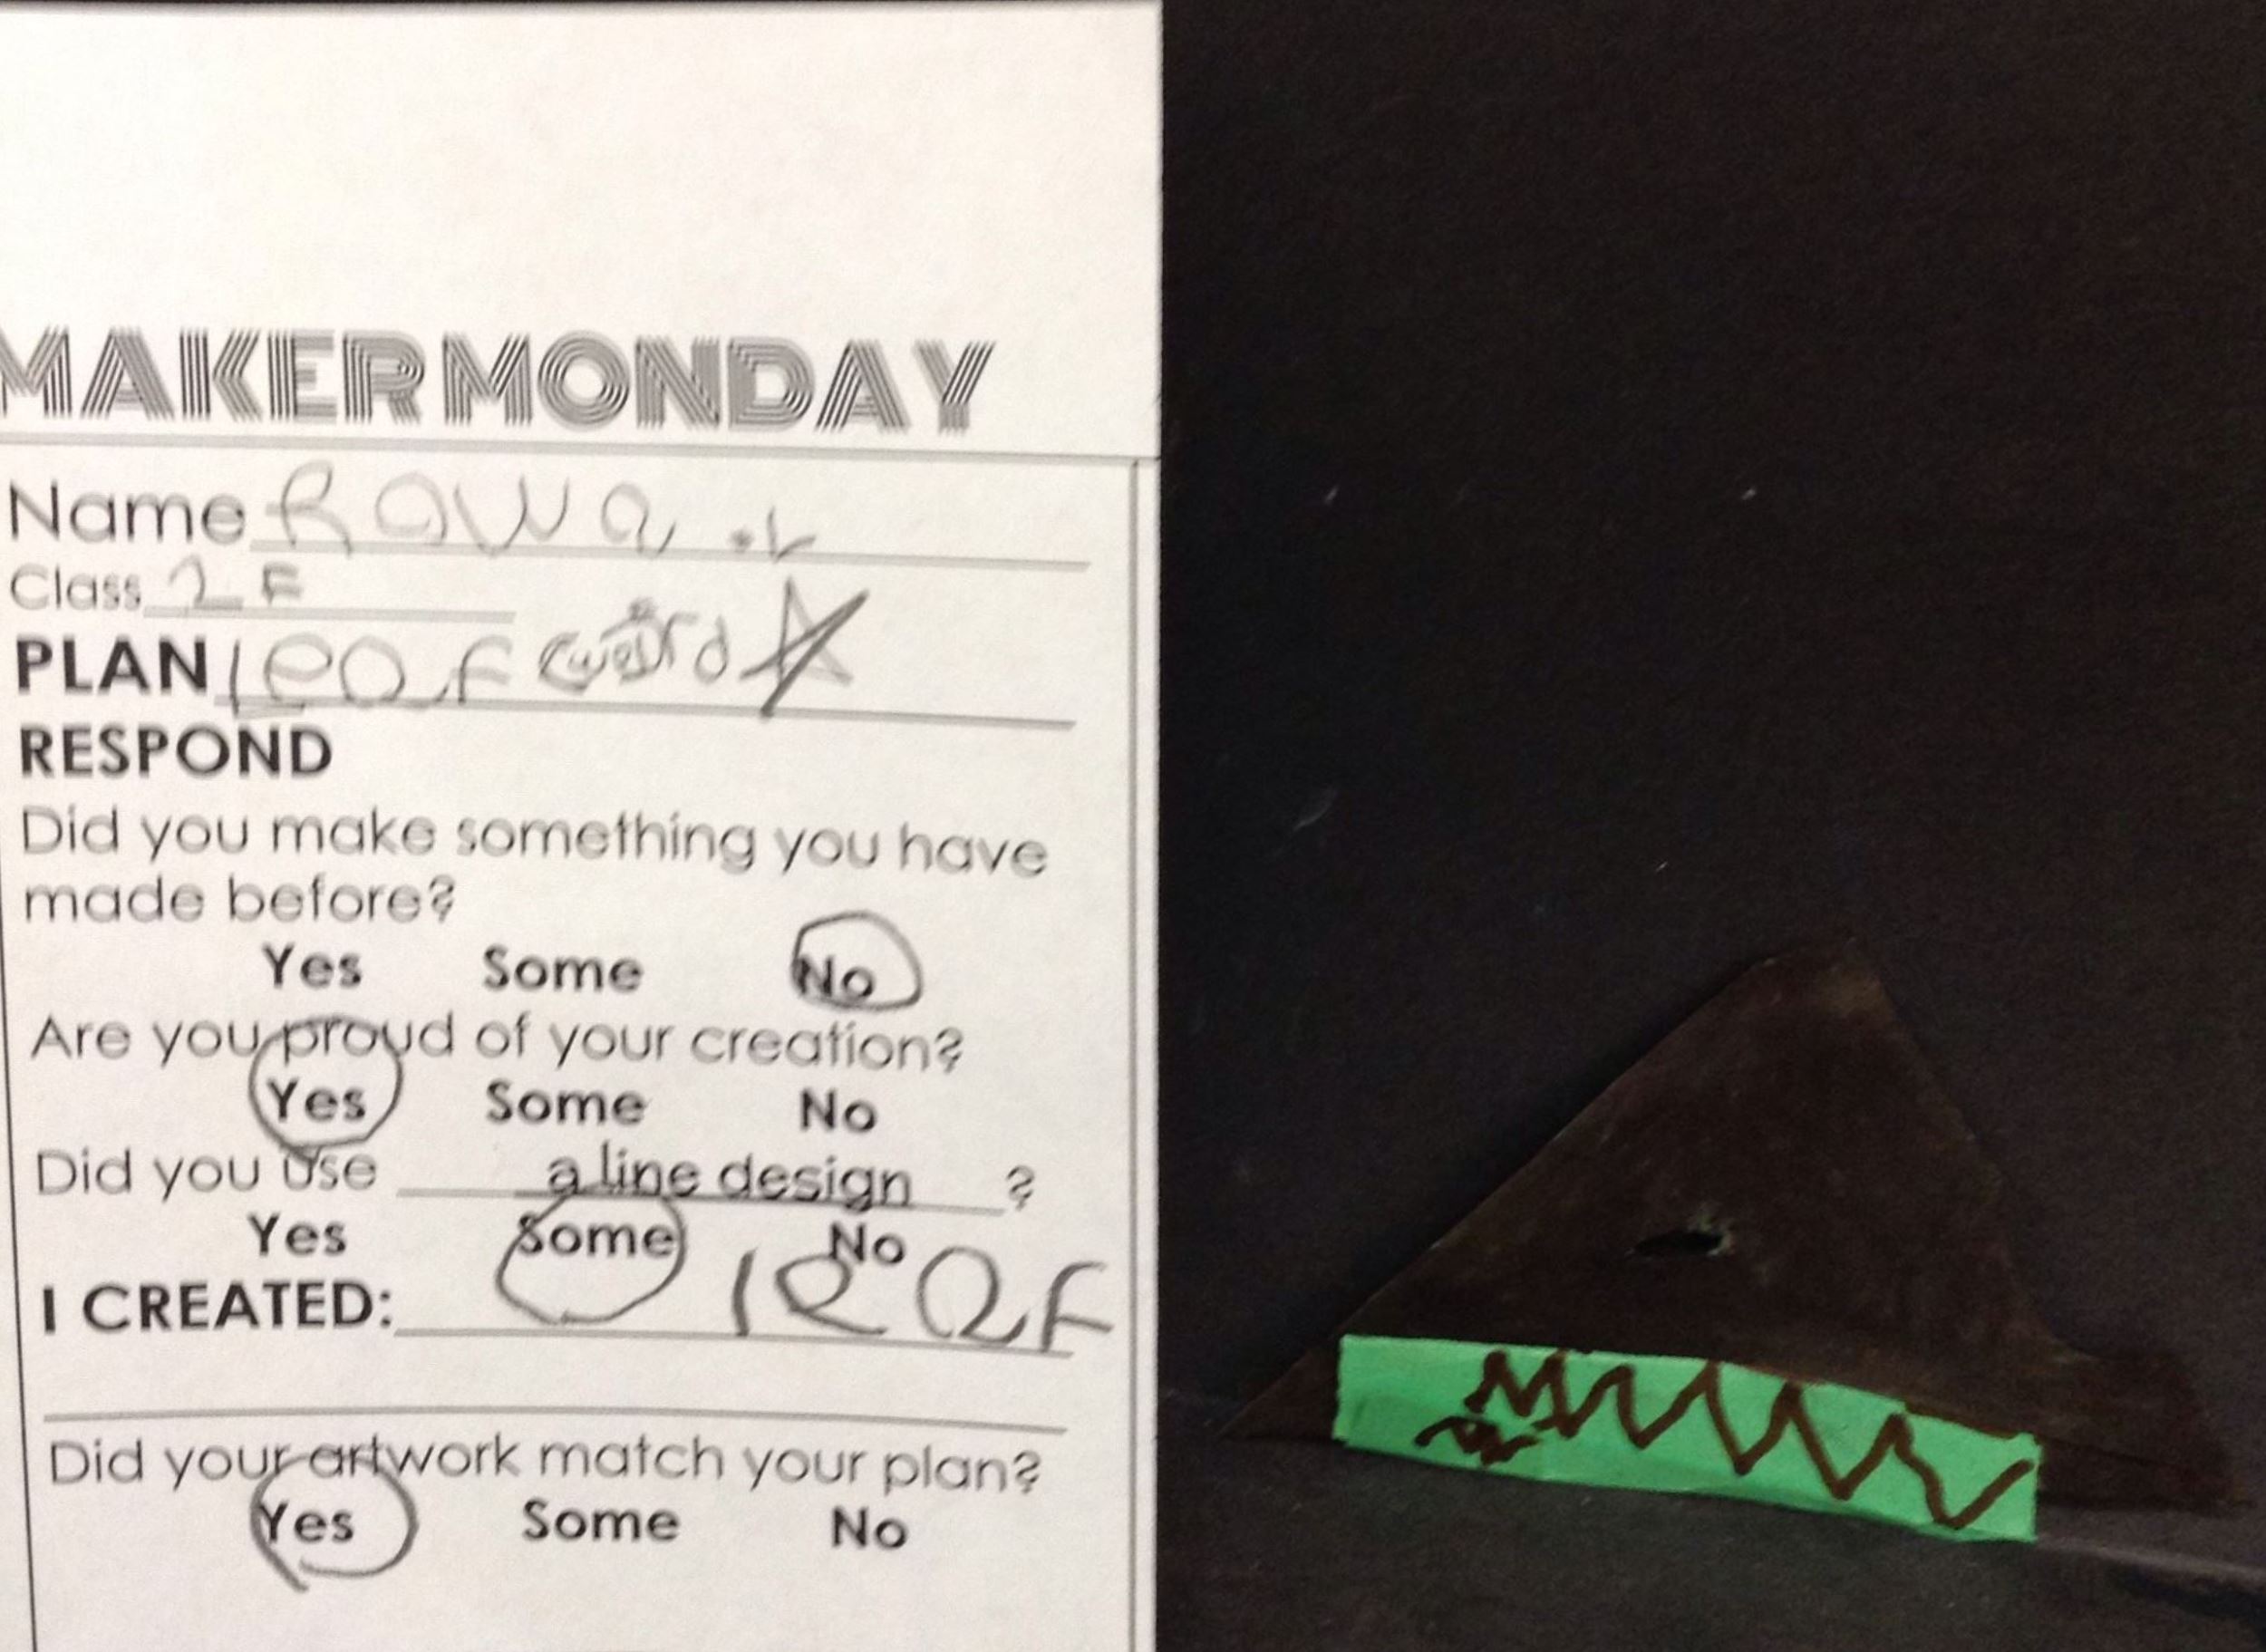 MAKER MONDAY
Name Rawa .L
Class 2F
PLAN leaf weird
RESPOND
Did you make something you have
made before?
Yes Some No
Are you proud of your creation?
Yes Some No
Did you use a line design ?
Yes Some No
I CREATED: leaf
Did your artwork match your plan?
Yes Some No